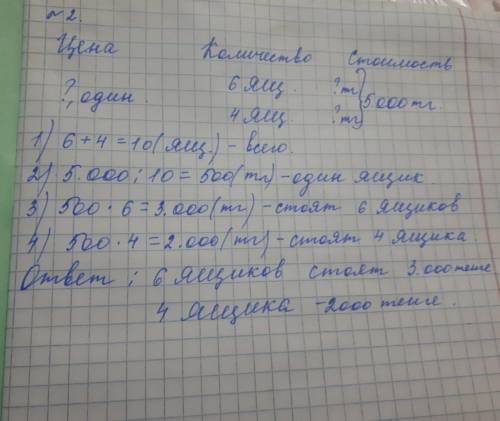 №2.
Цена Количество Стоимость
6 ящ. ?тг
?, один. 5000тг.
4 ящ ?тг
1) 6+4=10(ящ.)-всего.
2) 5.000:10=500(тг)-один ящик.
3) 500·6=3.000(тг)-стоят 6 ящиков
4) 500·4=2.000(тг)-стоят 4 ящика
Ответ: 6 ящиков стоят 3.000тенге
4 ящика -2000тенге.